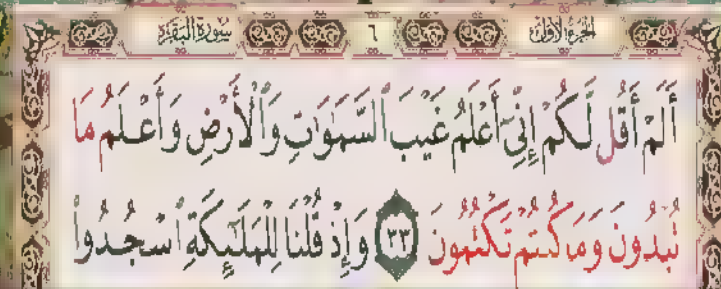 الجزء الأول ٦ سورة البقرة
أَلَمْ أَقُل لَّكُمْ إِنِّىٓ أَعْلَمُ غَيْبَ ٱلسَّمَٰوَٰتِ وَٱلْأَرْضِ وَأَعْلَمُ مَا
تُبْدُونَ وَمَا كُنتُمْ تَكْتُمُونَ ٣٣ وَإِذْ قُلْنَا لِلْمَلَٰٓئِكَةِ ٱسْجُدُوا۟